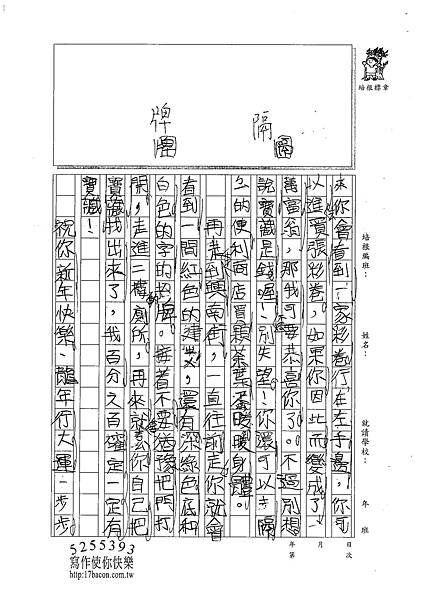 隔
牌
培根標章
培根編班：
姓名：
就讀學校：
年 班
來你會看到一家彩卷行在左手邊，你可
以進買張彩卷，如果你因此而變成了
萬富翁，那我可要恭喜你了。不過別想
說寶藏是錢喔！別失望！你還可以去隔
的便利商店買顆茶葉蛋暖暖身體。
再走到興南街，一直往前走你就會
看到一間紅色的建，還有深綠色底和
白色的字的招牌。接著不要猶豫把門打
開，走進二樓廁所，再來就你自己把
寶藏找出來了，我百分之百確定一定有
寶藏！
祝你新年快樂、龍年行大運、一步步
年 月 日
第 次
5255393
寫作使你快樂
http://17bacon.com.tw